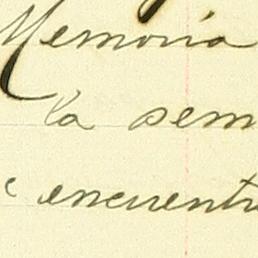 Memoria
la sem
encuentr